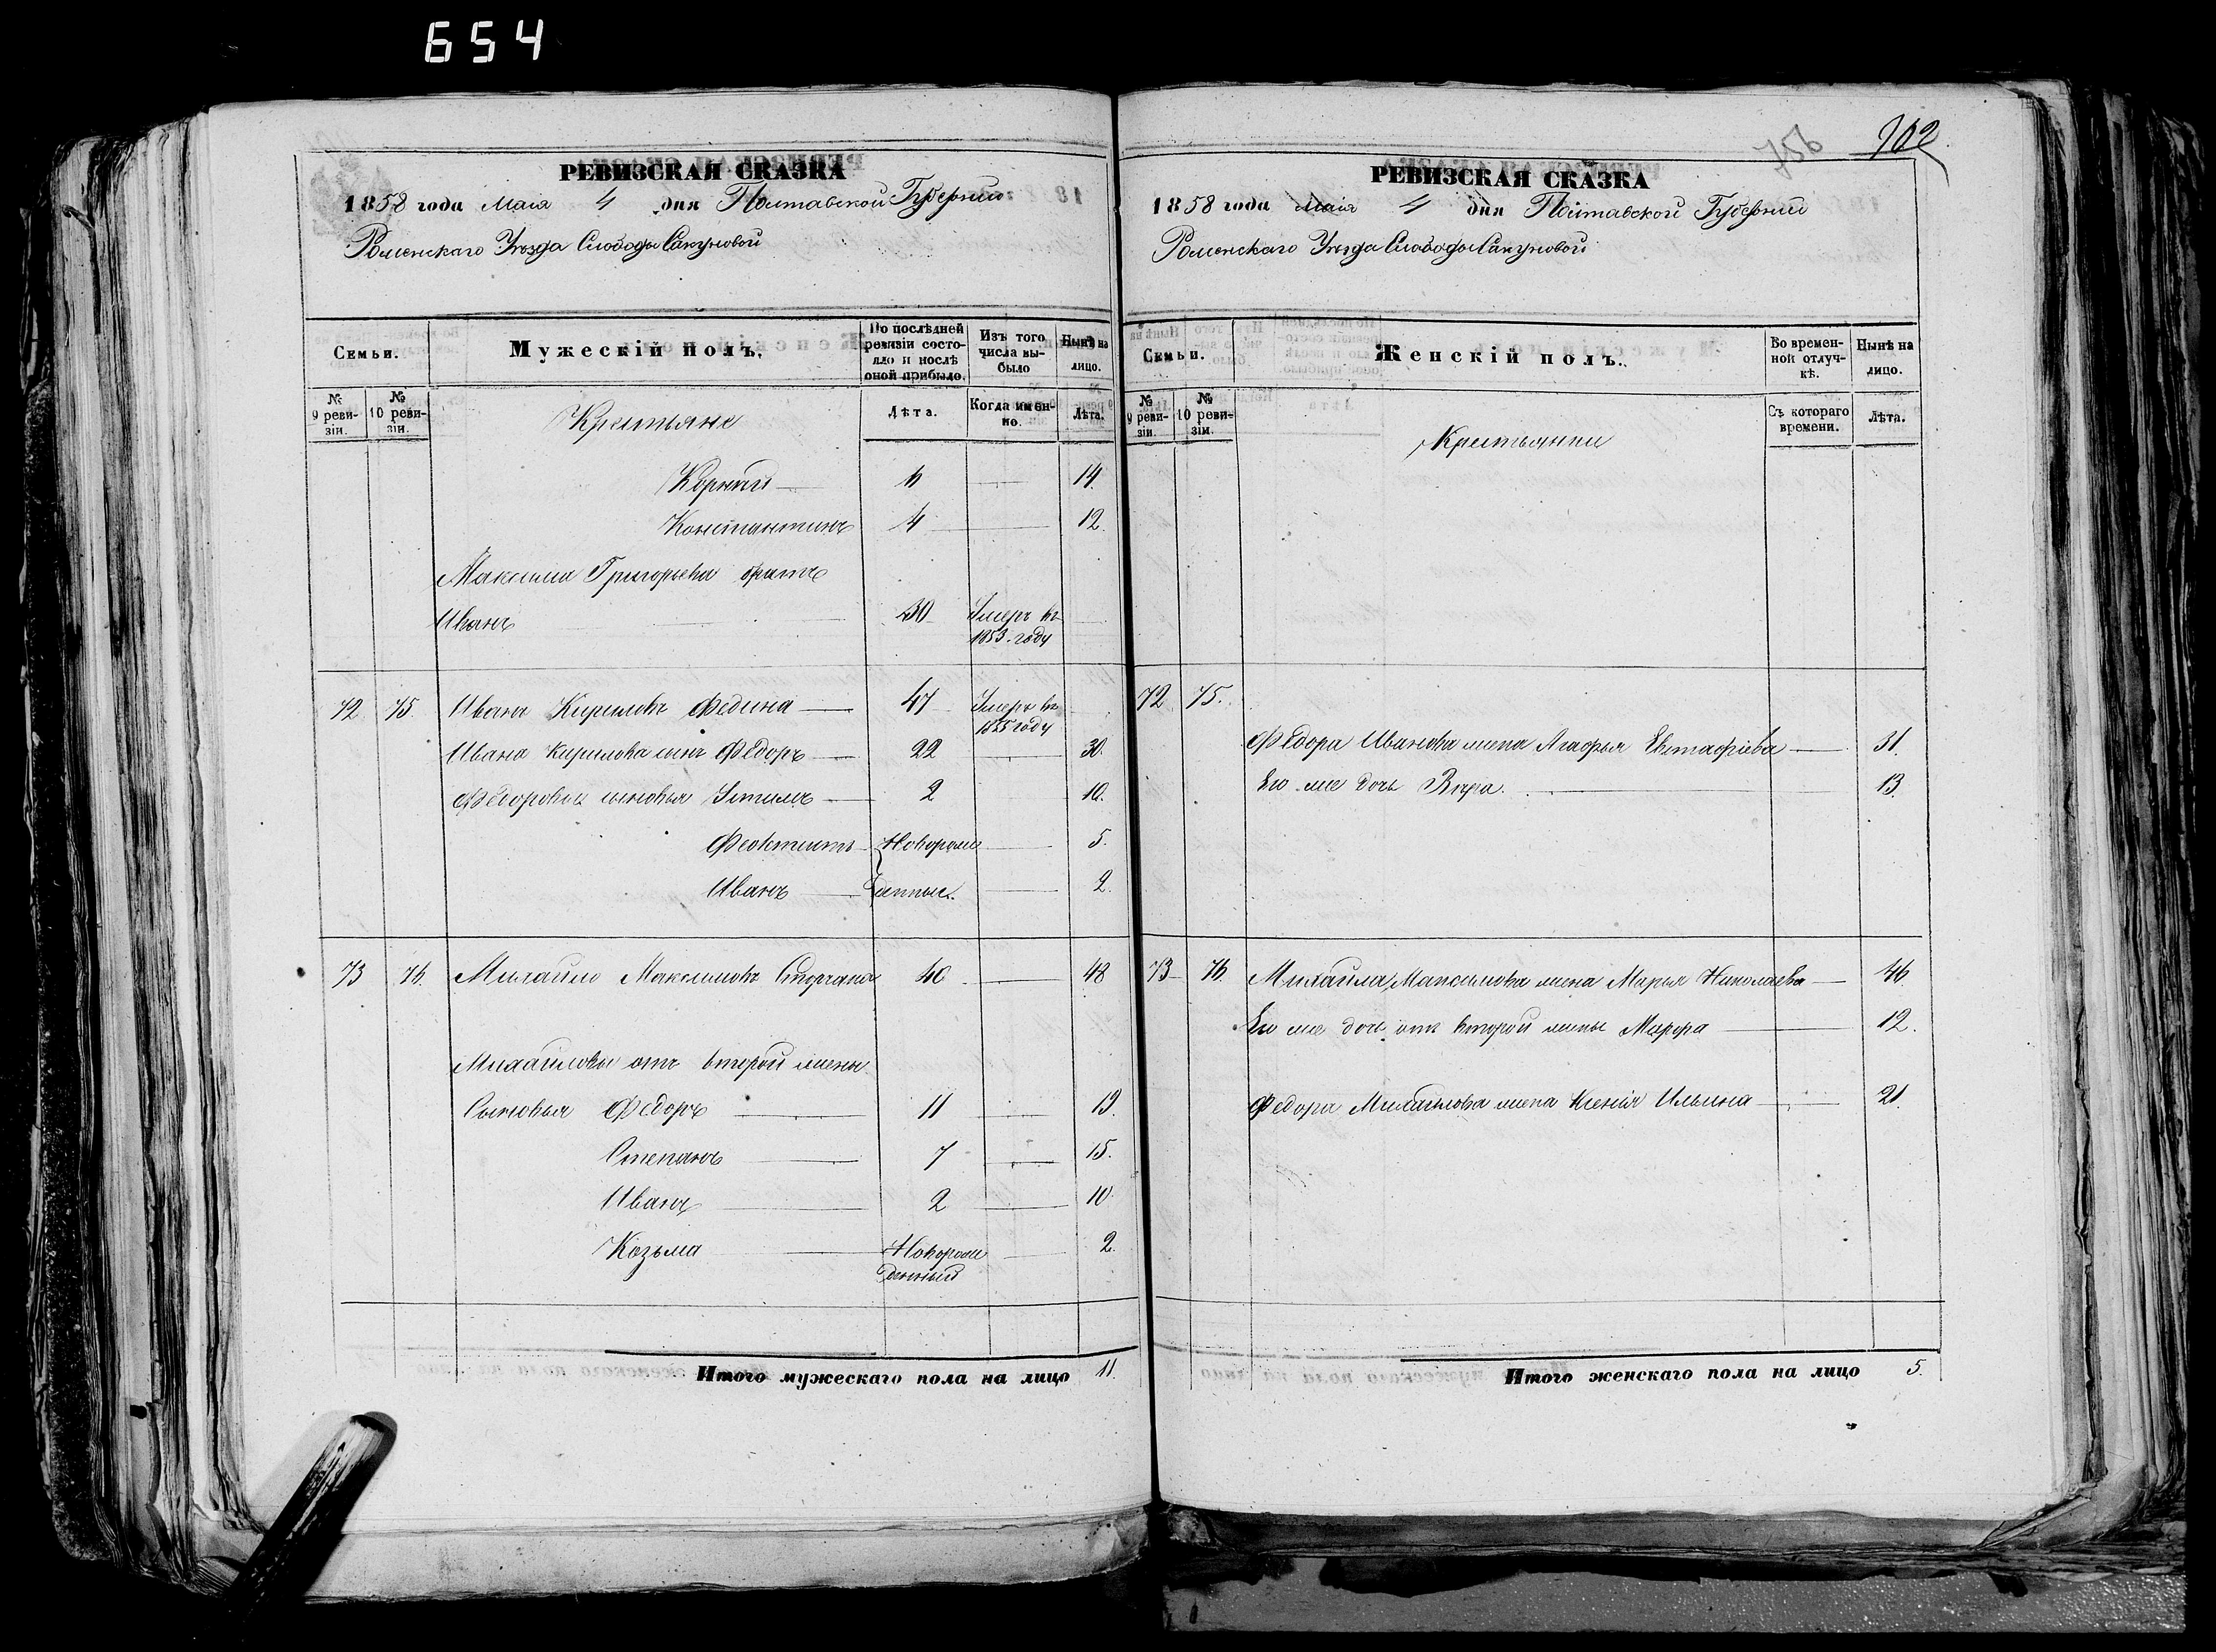 654
РЕВИЗСКАЯ СКАЗКА
1858 года Мая 4 дня Полтавской Губернии
Роменскаго Уѣзда Слободы Сакуновой
Семьи.
Мужескій полъ.
По послѣдней ревизіи состояло и послѣ оной прибыло.
Изъ того числа выбыло
Нынѣ на лицо.
№ 9 ревизіи.
№ 10 ревизіи.
Крестьяне
Лѣта.
Когда именно.
Лѣта.
Корнѣй 6 14.
Константинъ 4 12.
Максима Григорьева братъ
Иванъ 30 Умеръ въ
1853 году
72 75. Иванъ Кириловъ Федина 47 Умеръ въ
1855 году
Ивана Кирилова сынъ Федоръ 22 30.
Федоровы сыновья Устимъ 2 10.
Феоктистъ Новорож 5.
Иванъ денные. 2.
73 76. Михайло Максимовъ 40 48
Михайловы отъ второй жены
Сыновья Федоръ 11 19.
Степанъ 7 15.
Иванъ 2 10.
Козьма Новорож 2.
денный
Итого мужескаго пола на лицо 11.
756 702
РЕВИЗСКАЯ СКАЗКА
1858 года Мая 4 дня Полтавской Губернии
Роменскаго Уѣзда Слободы Сакуновой
Семьи.
Женскій полъ.
Во временной отлучкѣ.
Нынѣ на лицо.
№ 9 ревизіи.
№ 10 ревизіи.
Крестьянки
Съ котораго времени.
Лѣта.
72 75.
Федора Иванова жена Агафья Евстафіева 31.
Его же дочь 13.
73 76. Михайла Максимова жена Марья Николаева 46
Его же дочь отъ второй жены Марфа 12.
Федора Михайлова жена Ксенія Ильина 21.
Итого женскаго пола на лицо 5.